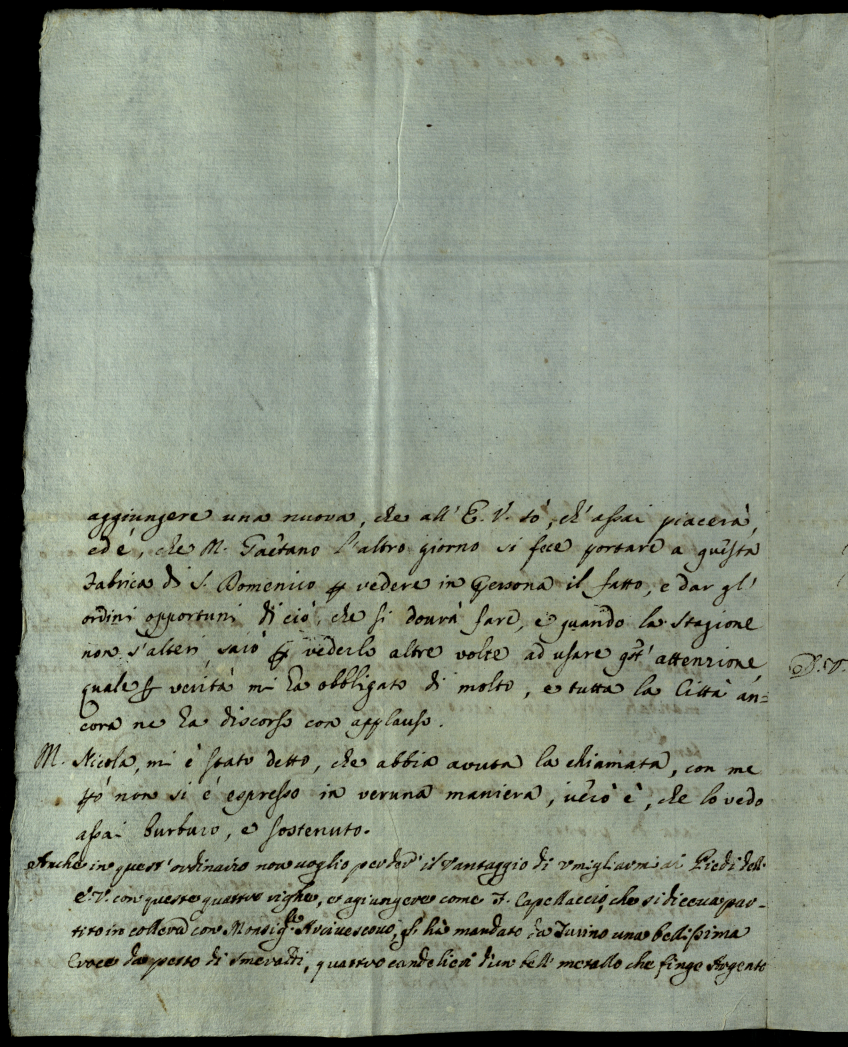 aggiungere una nuova, che all' E. V. sò, ch' assai piacerà,
ed è, che M. Gaetano l'altro giorno si fece portare a questa
Fabrica di S. Domenico per vedere in Persona il fatto, e dar gl'
ordini opportuni di ciò, che si dovrà fare, e quando la stagione
non s'alteri, sarò per vederlo altre volte ad usare qst' attenzione
quale per verità mi ha obbligato di molto, e tutta la Città an=
cora ne ha discorso con applauso.
M. Nicola, mi è stato detto, che abbia avuta la chiamata, con me
però non si è espresso in veruna maniera, vero è, che lo vedo
assai burbero, e sostenuto.
Anche in quest' ordinario non voglio perder' il vantaggio di umigliarmi ai Piedi dell'
E. V. con queste quattro righe, et agiungere come F. Capellaccio, che si diceva par-
tito in collera con Monsig. Arcivescovo, gli hà mandato da Turino una bellissima
Croce da petto di Smeraldi, quattro candelieri d'un bell' metallo che finge Argento
D. V.